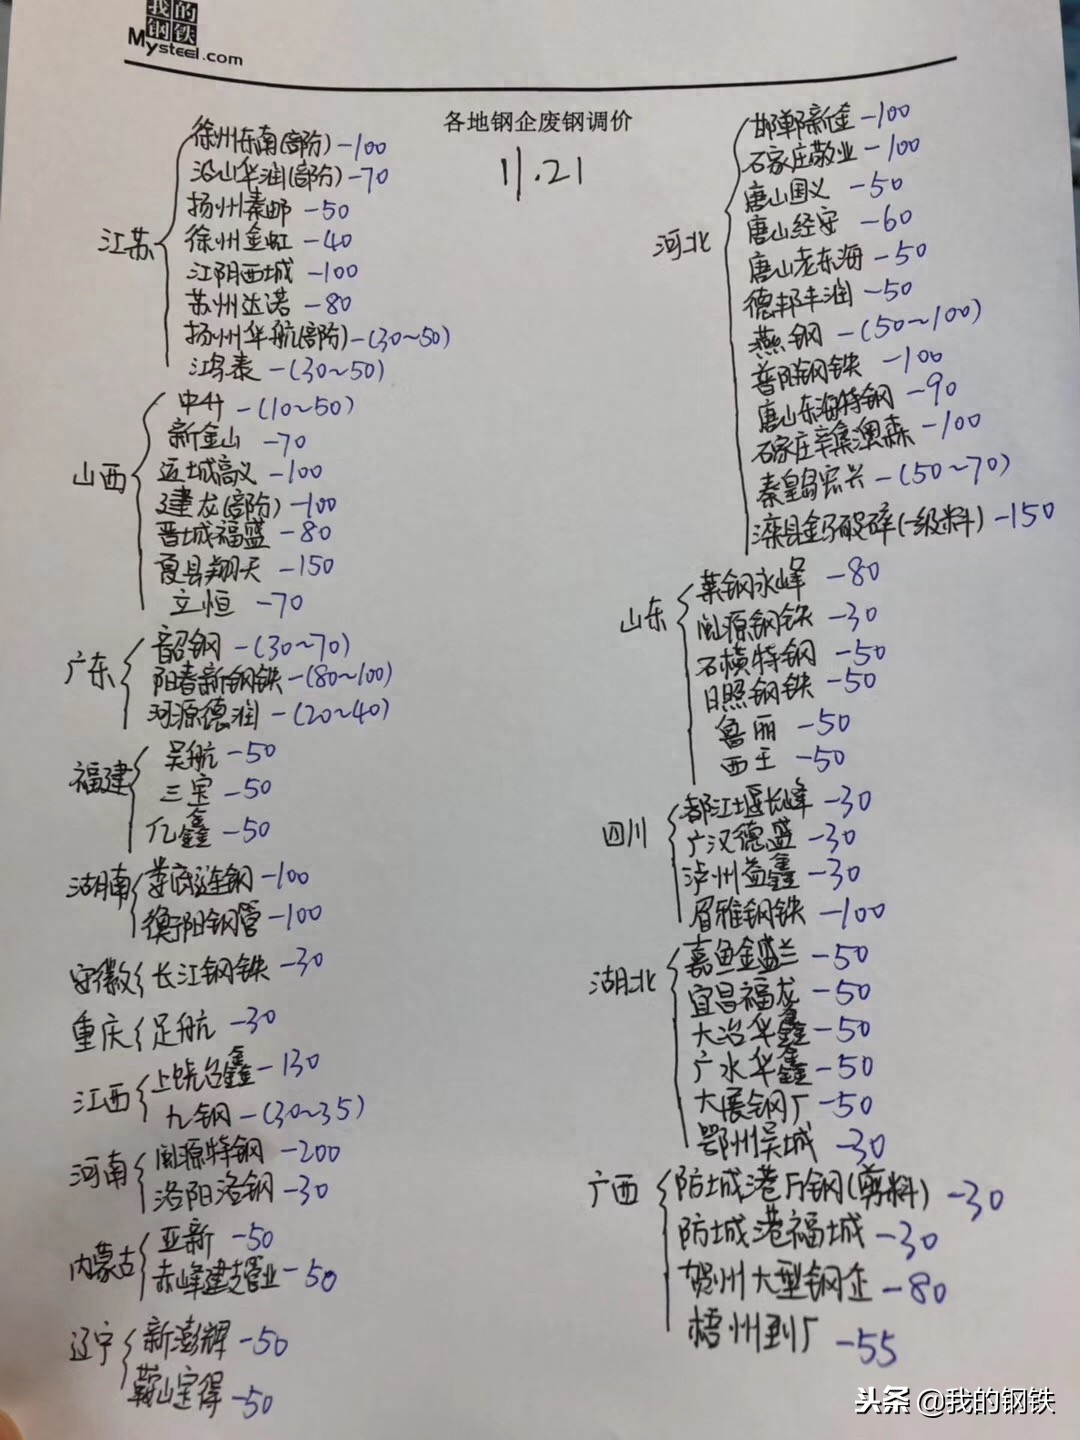 我的
钢铁
Mysteel.com
各地钢企废钢调价
11.21
江苏
徐州东南(部份) -100
华润(部份) -70
扬州秦邮 -50
徐州金虹 -40
江阴西城 -100
苏州达诺 -80
扬州华航(部份) -(30~50)
鸿泰 -(30~50)
山西
中升 -(10~50)
新金山 -70
运城高义 -100
建龙(部份) -100
晋城福盛 -80
夏县翔天 -150
立恒 -70
广东
韶钢 -(30~70)
阳春新钢铁 -(80~100)
河源德润 -(20~40)
福建
吴航 -50
三宝 -50
亿鑫 -50
湖南
娄底涟钢 -100
衡阳钢管 -100
安徽 长江钢铁 -30
重庆 足航 -30
江西
上饶名鑫 -130
九钢 -(30~35)
河南
闽源特钢 -200
洛阳洛钢 -30
内蒙古
亚新 -50
赤峰建支管业 -50
辽宁
新澎辉 -50
鞍山宝得 -50
河北
邯郸新金 -100
石家庄敬业 -100
唐山国义 -50
唐山经安 -60
唐山老东海 -50
德邦丰润 -50
燕钢 -(50~100)
普阳钢铁 -100
唐山东海特钢 -90
石家庄辛集澳森 -100
秦皇岛宏兴 -(50~70)
滦县金马破碎(一级料) -150
山东
莱钢永峰 -80
闽源钢铁 -30
石横特钢 -50
日照钢铁 -50
鲁丽 -50
西王 -50
四川
都江堰长峰 -30
广汉德盛 -30
泸州益鑫 -30
眉雅钢铁 -100
湖北
嘉鱼金盛兰 -50
宜昌福龙 -50
大冶华鑫 -50
广水华鑫 -50
大展钢厂 -50
鄂州吴城 -30
广西
防城港万钢(剪料) -30
防城港福城 -30
贺州大型钢企 -80
梧州到厂 -55
头条 @我的钢铁